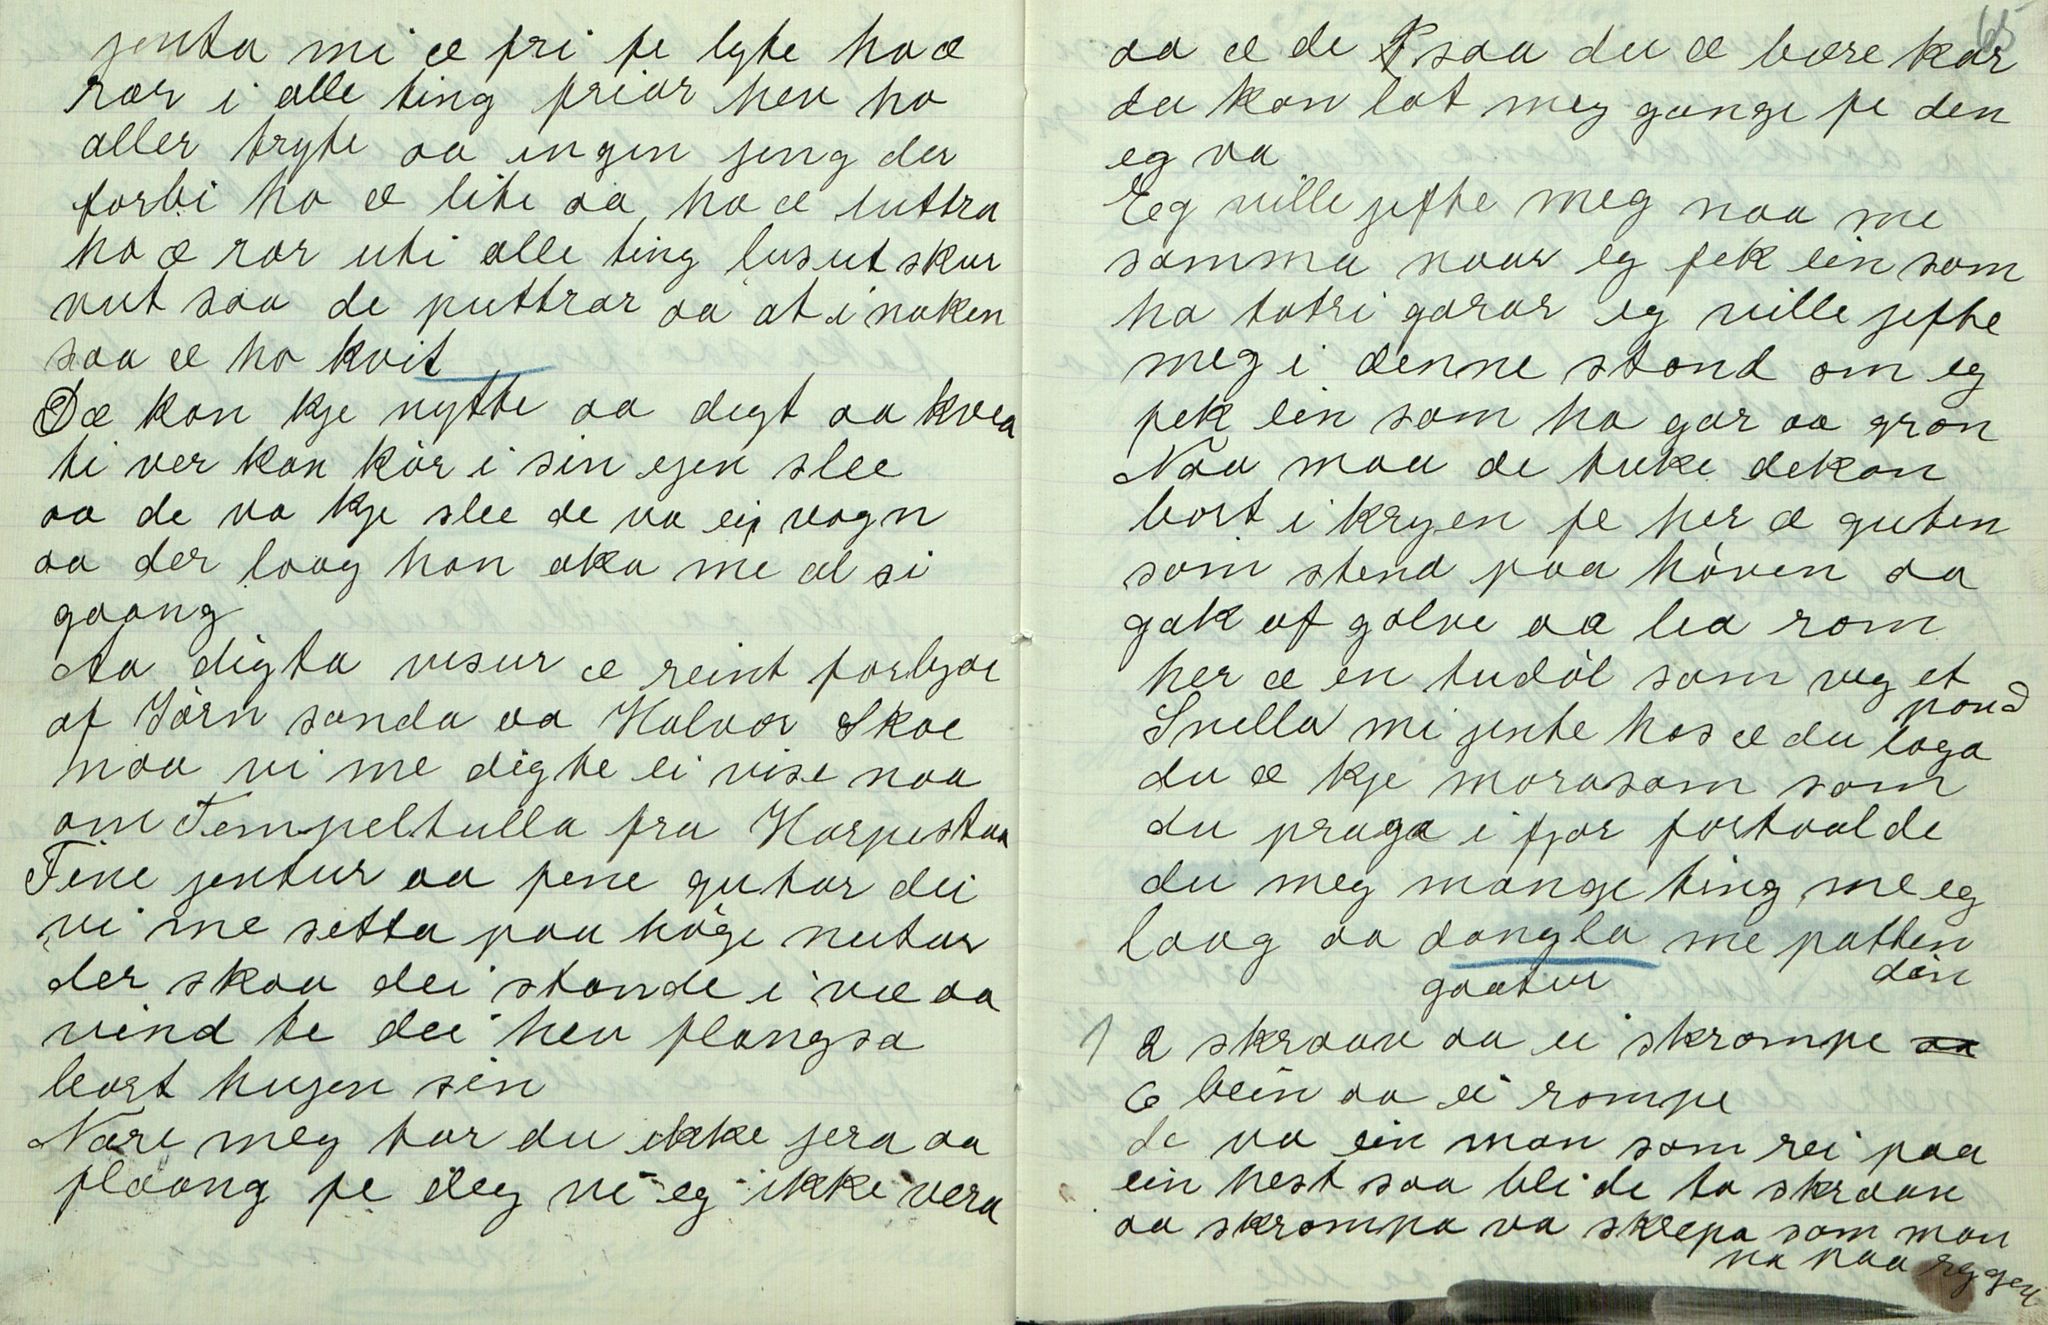 jenta mi æ fri fe lyte ho æ
rar i alle ting friar hev ho
aller tryte aa ingen jeng der
forbi ho æ lite aa, ho æ luttra
ho æ rar uti alle ting lusut skur
vut saa de puttrar aa at i naken
saa æ ho kvit
Dæ kan kje nytte aa digt aa kvea
ti ver kan kör i sin ejen slee
aa de va kje slee de va ein vogn
aa der laag han aka me al si
gaang
Aa digta visur æ reint forbjoe
af Jörn sanda aa Halvor Skoe
naa vi me digte ei vise naa
om Tempeltulla fra Harpestaa
Fine jentur aa pene gutar dei
vi me setta paa höge nutar
der skaa dei stande i væ aa
vind te dei hev flangsa
bort hugen sin
Nære meg tar du ikke jera aa
plaang fe deg vi eg ikke vera
65
aa æ de saa du æ bære kar
du kan lat meg gange fe den
eg va
Eeg ville jefte meg naa me
samma naar eg fek ein som
ha tatri garar eg ville jefte
meg i denne stand om eg
fek ein som ha gar aa gron
Naa maa de tuke dekan
bort i kryen fe her æ guten
som stend paa höven aa
gak af golve aa lea rom
her æ en tudöl som veg et
pond
Snella mi jente hos æ du laga
du æ kje morasam som
du praga i fjor fortaalde
du meg mange ting me eg
laag aa dangla me patten
din
gaatur
1 2 skraav aa ei skrompe aa
6 bein aa ei rompe
de va ein man som rei paa
ein hest saa bli de to skraav
aa skrompa va skrepa som man
va paa ryggen